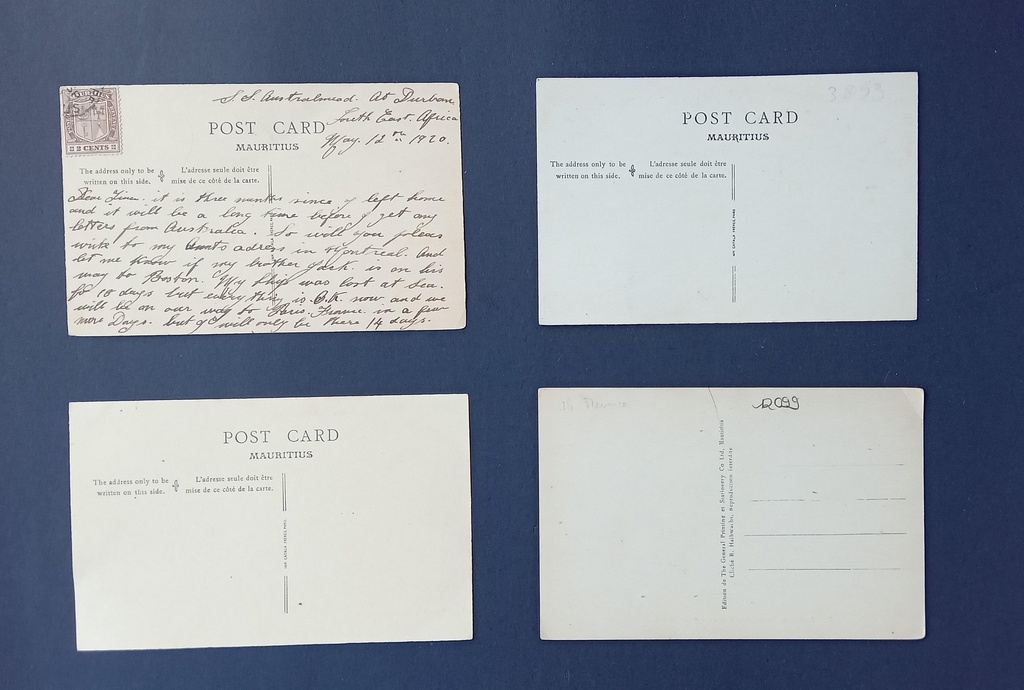 S.S. Australmead. At Durban
South East. Africa
May. 12th 1920.
POST CARD
MAURITIUS
2 CENTS
The address only to be
written on this side.
L'adresse seule doit être
mise de ce côté de la carte.
Dear it is three months since I left home
and it will be a long time before I get any
letters from Australia. So will you pleas
write to my Aunts adress in Montreal. And
let me know if my brother Jack. is on his
way to Boston. My Ship was lost at Sea.
for 18 days but everything is O.K. now. and we
will be on our way to Paris. France. in a few
more Days. but I will only be there 14 days.
3893
POST CARD
MAURITIUS
The address only to be
written on this side.
L'adresse seule doit être
mise de ce côté de la carte.
IMP. CATALA FRÈRES, PARIS
POST CARD
MAURITIUS
The address only to be
written on this side.
L'adresse seule doit être
mise de ce côté de la carte.
IMP. CATALA FRÈRES, PARIS
R099
Edition de The General Printing et Stationery Co Ltd. Mauritius
Cliché R. reproduction interdite